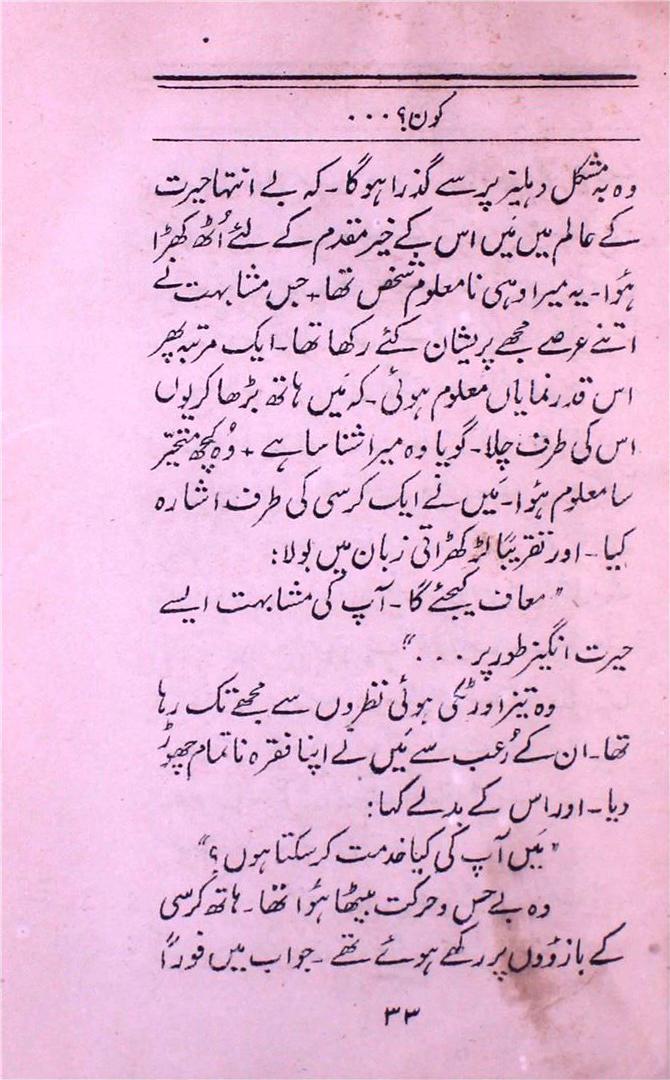 کون؟ ...
وہ بہ مشکل دہلیز پر سے گذرا ہوگا۔ کہ بے انتہا حیرت
کے عالم میں مَیں اس کے خیر مقدم کے لئے اُٹھ کھڑا
ہؤا۔ یہ میرا وہی نامعلوم شخص تھا + جس مشابہت نے
اتنے عرصے مجھے پریشان کئے رکھا تھا۔ ایک مرتبہ پھر
اس قدر نمایاں معلوم ہوئی۔ کہ مَیں ہاتھ بڑھا کر یوں
اس کی طرف چلا۔ گویا وہ میرا شناسا ہے + وُہ کچھ متحیّر
سا معلوم ہؤا۔ مَیں نے ایک کرسی کی طرف اشارہ
کیا۔ اور تقریباً لڑکھڑاتی زبان میں بولا:
"معاف کیجئے گا۔ آپ کی مشابہت ایسے
حیرت انگیز طور پر ..."
وہ تیز اور ٹکی ہوئی نظروں سے مجھے تک رہا
تھا۔ ان کے رُعب سے مَیں نے اپنا فقرہ ناتمام چھوڑ
دیا۔ اور اس کے بدلے کہا:
"مَیں آپ کی کیا خدمت کر سکتا ہوں؟"
وہ بے حس و حرکت بیٹھا ہؤا تھا۔ ہاتھ کرسی
کے بازؤوں پر رکھے ہوئے تھے۔ جواب میں فوراً
۳۳